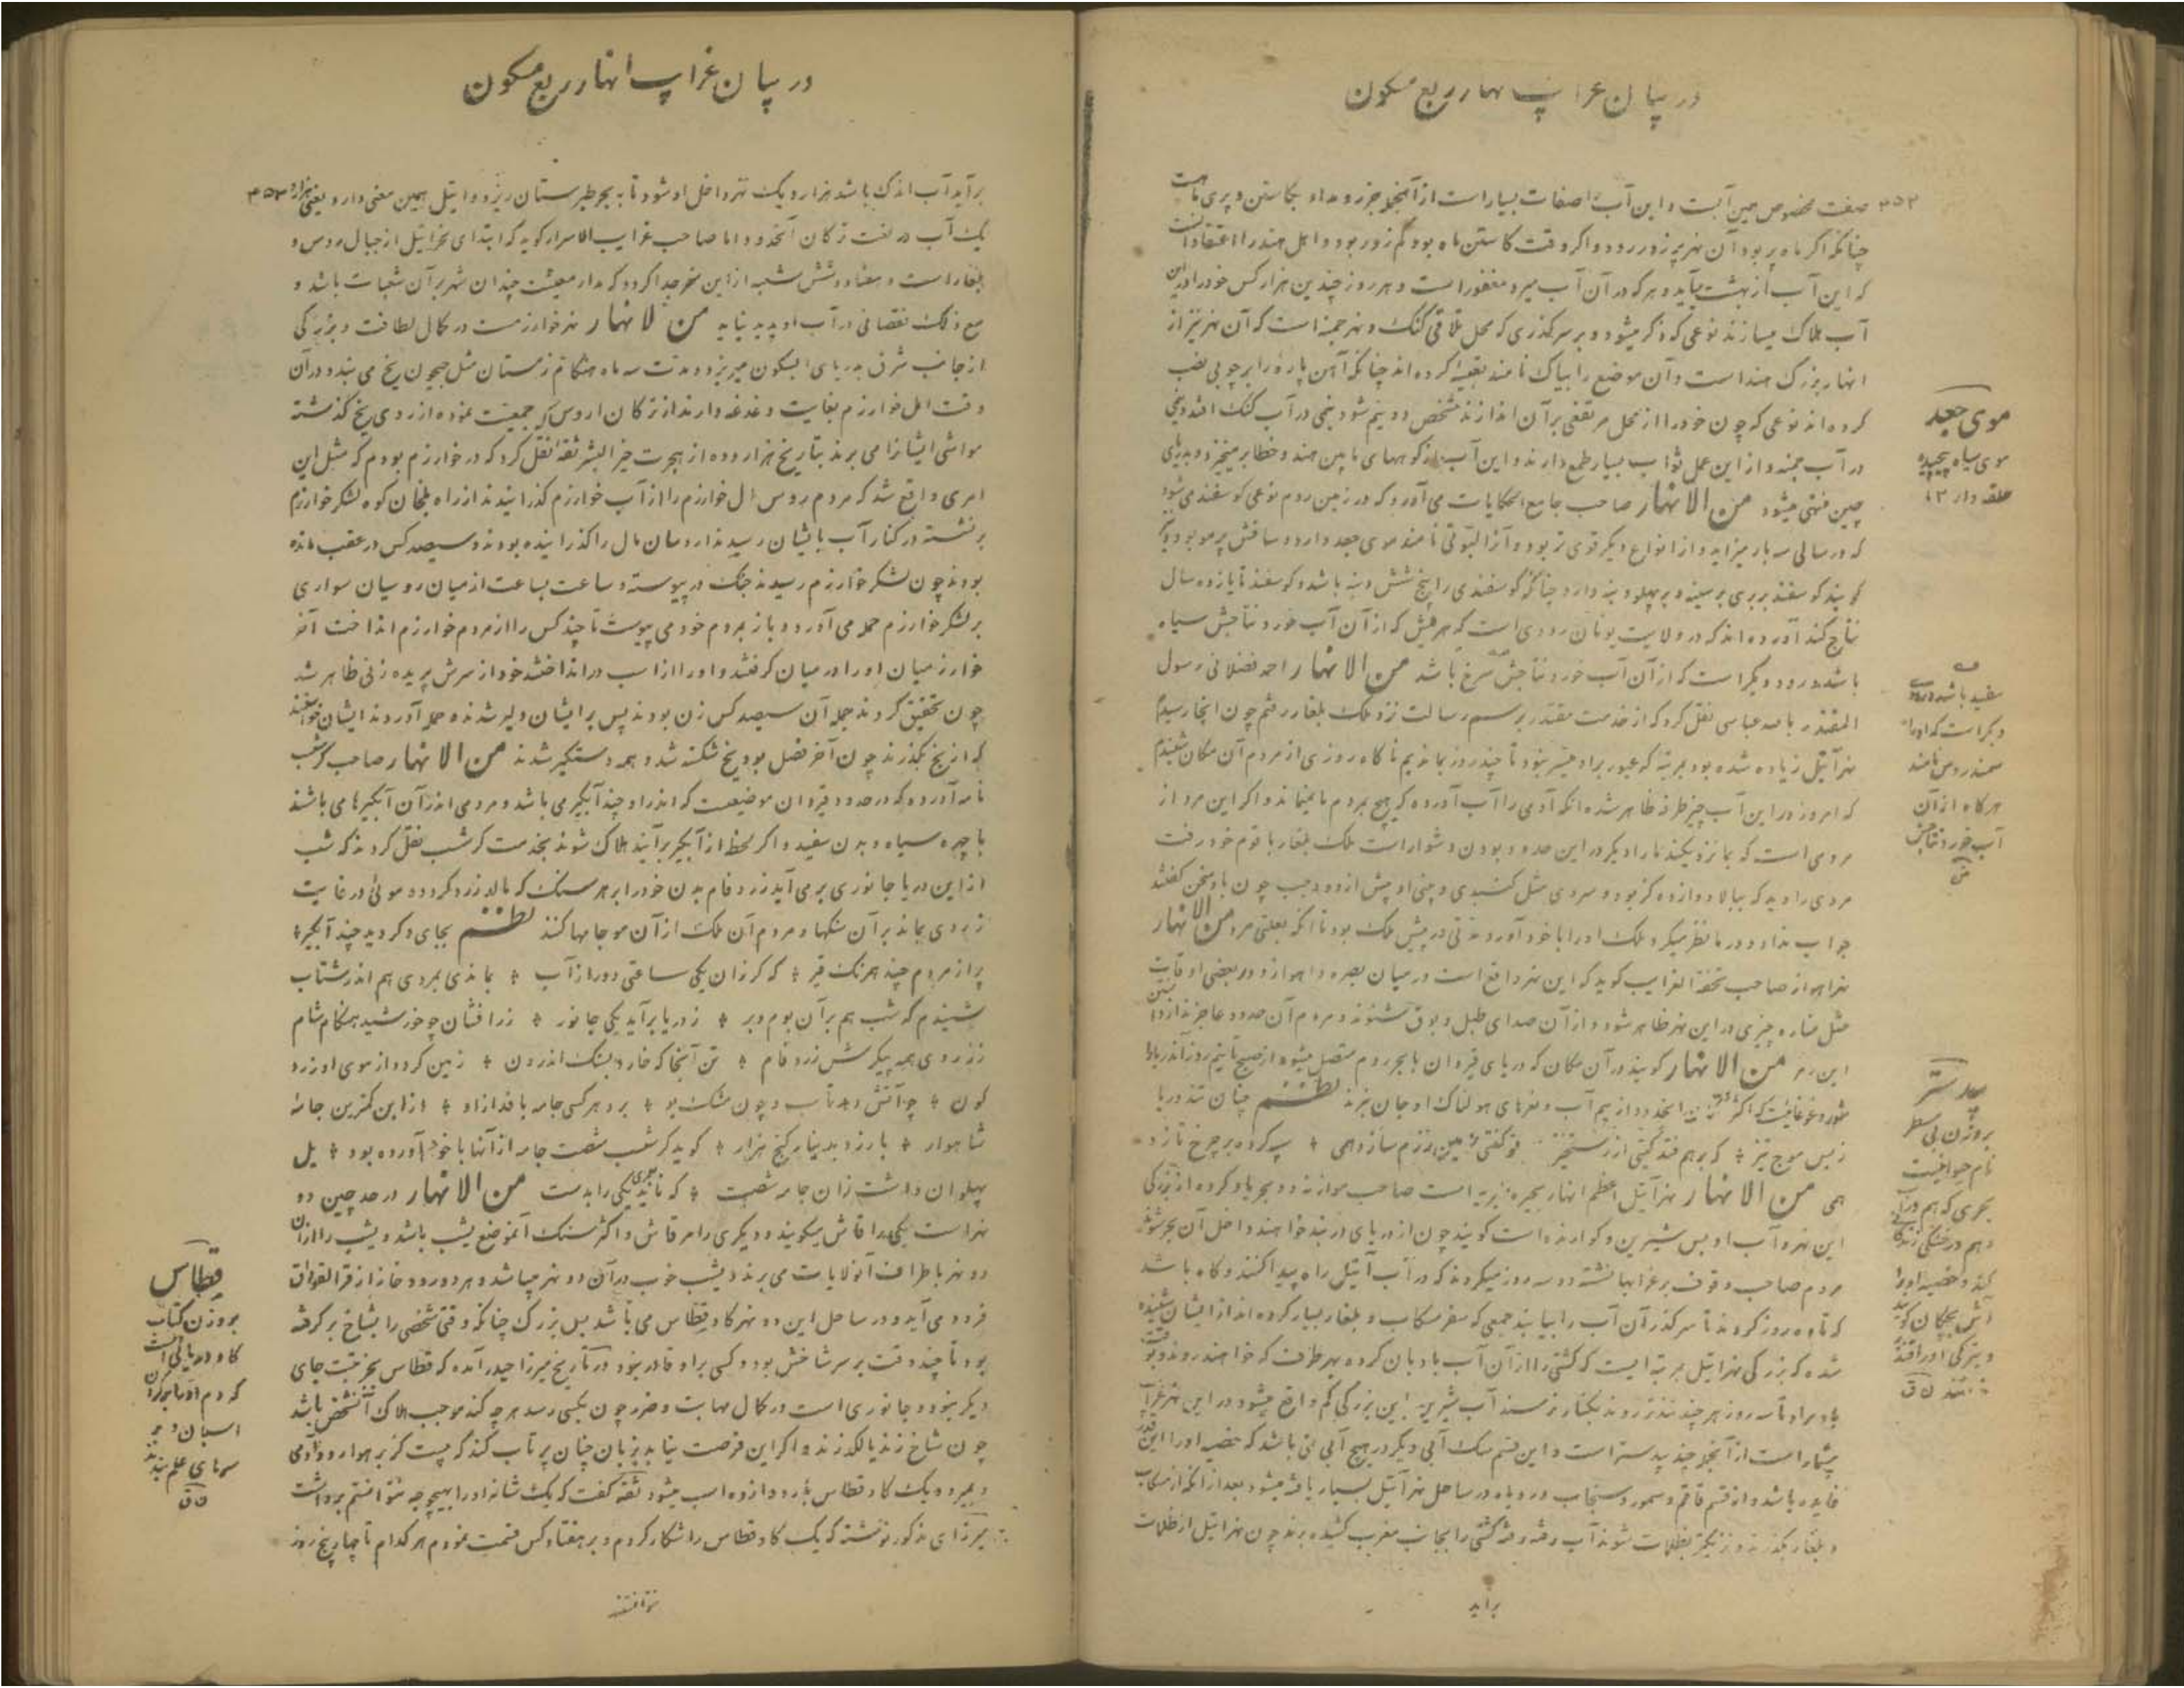 در بیان غرایب انهار ربع مسکون
۳۵۲ صفت مخصوص همین آبست و این آب را صفات بسیار است از آنجمله جزر و مد او بکاستن و پری ماهست
چنانکه اگر ماه پر بود آن نهر پر زور رود و اگر وقت کاستن ماه بود کم زور بود و اهل هند را اعتقاد آنست
که این آب از بهشت میآید و هر که در آن آب میرد مغفور است و هر روز چندین هزار کس خود را در این
آب هلاک میسازند نوعی که ذکر میشود و بر سر گذری که محل تلاقی گنگ و نهر جمنه است که آن نهر نیز از
انهار بزرگ هند است و آن موضع را بیاک نامند تعبیه کرده اند چنانکه آهن پاره را بر چوبی نصب
کرده اند نوعی که چون خود را از محل مرتفعی بر آن اندازند شخص دو نیم شود نیمی در آب گنگ افتد و نیمی
در آب جمنه و از این عمل ثواب بسیار طمع دارند و این آب از کوههای مابین هند و خطا بر میخیزد و بدریای
چین منتهی میشود من الانهار صاحب جامع الحکایات می آورد که در زمین روم نوعی گوسفند می شود
که در سالی سه بار میزاید و از انواع دیگر قوی تر بود و آنرا نامند موی جعد دارد و ساقش پر مو بود
گویند گوسفند بربری بر سینه و بر پهلو دنبه دارد چنانکه گوسفندی را پنج شش دنبه باشد و گوسفند تا یازده سال
نتاج کند آورده اند که در ولایت یونان رودی است که هر میش که از آن آب خورد نتاجش سیاه
باشد و رود دیگر است که از آن آب خورد نتاجش سرخ باشد من الانهار احمد فضلانی رسول
المقتدر بالله عباسی نقل کرد که از خدمت مقتدر برسم رسالت نزد ملک بلغار رفتم چون آنجا رسیدم
نهر آتیل زیاده شده بود بمرتبه که عبور بر او میسر نبود تا چند روز بماندیم ناگاه روزی از مردم آن مکان شنیدم
که امروز در این آب چیز طرفه ظاهر شده آنکه آدمی را آب آورده که هیچ بمردم ما نمیماند و اگر این مرد از
مردمی است که بما نزدیکند ما را دیگر در این حدود بودن دشوار است ملک بلغار با قوم خود رفت
مردی را دید که ببالا دوازده گز بود و سری مثل گنبدی و بینی او بیش از دو وجب چون با او سخن گفتند
جواب نداد و در ما نظر میکرد ملک او را با خود آورد مدتی در پیش ملک بود تا آنکه بعلتی مرد من الانهار
نهر اهواز صاحب تحفة الغرایب گوید که این نهر واقع است در میان بصره و اهواز و در بعضی اوقات
مثل مناره چیزی در این نهر ظاهر شود و از آن صدای طبل و بوق شنوند و مردم آن حدود عاجزند از دانستن
این رمز من الانهار گویند در آن مکان که دریای قیروان با بحر روم متصل میشود از صبح تا نیم روز آن دریا را
شور و غوغائیست که اگر آنجا رود از بیم آب و نعرهای هولناک او جان نبرد نظم چنان تند دریا
زبس موج تیز ٭ که بر هم فتد گیتی از رستخیز تو گفتی زمین رزم سازد همی ٭ سپه کرده بر چرخ تازد
همی من الانهار نهر آتیل اعظم انهار بحیره است صاحب موازنه دو بحر یاد کرده از بزرگی
این نهر و آب او بس شیرین و گوارنده است گویند چون از دریای دربند خواهند داخل آن بحر شوند
مردم صاحب وقوف بر غرابها نشسته دو سه روز میگردند که در آب آتیل راه پیدا کنند و گاه باشد
که تا ده روز گردند تا سر گذر آن آب را بیابند جمعی که سفر سکاب و بلغار بسیار کرده اند از ایشان شنیده
شده که بزرگی نهر آتیل بمرتبه ایست که کشتی را از آن آب بادبان کرده بهر طرف که خواهند روند و بوقت
باد مراد تا سه روز هر چند تندتر روند بکنار نرسند آب شیرین باین بزرگی کم واقع میشود در این نهر غرایب
بیشمار است از آنجمله چند بیدستر است و این قسم سک آبی دیگر در هیچ آبی نمی باشد که خصیه او را این قدر
فایده باشد و از قسم قاقم و سمور و سنجاب و روباه در ساحل نهر آتیل بسیار یافت میشود بعد از آنکه از سکاب
و بلغار بگذرند و نزدیک بظلمات شوند آب رفته رفته کشتی را بجانب مغرب کشیده برند چون نهر آتیل از ظلمات
برآید
موی جعد
موی سیاه پیچیده
حلقه دار ۱۲
سفید باشد و رود
دیگر است که او را
سمندروس نامند
هر گاه از آن
آب خورد نتاجش
بیدستر
بروزن بی سطر
نام حیوانیست
بحری که هم در آب
و هم در خشکی زندگانی
کند و خصیه او را
آش بچگان گویند
در بیان غرایب انهار ربع مسکون
برآید آب اندک باشد هزار و یک نهر داخل او شود تا به بحر طبرستان ریزد و اتیل همین معنی دارد یعنی هزار و ۳۵۳
یک آب در لغت ترکان آنحدود اما صاحب غرایب الاسرار گوید که ابتدای نهر اتیل از جبال روس و
بلغار است و هفتاد و شش شعبه از این نهر جدا گردد که مدار معیشت چندان شهر بر آن شعبات باشد و
مع ذلک نقصانی در آب او پدید نیاید من الانهار نهر خوارزمست در کمال لطافت و بزرگی
از جانب شرق بدریای ابسکون میریزد و مدت سه ماه هنگام زمستان مثل جیحون یخ می بندد و در آن
وقت اهل خوارزم بغایت دغدغه دارند از ترکان اروس که جمعیت نموده از روی یخ گذشته
مواشی ایشان را می برند بتاریخ هزار و ده از هجرت خیر البشر ثقه نقل کرد که در خوارزم بودم که مثل این
امری واقع شد که مردم روس مال خوارزم را از آب خوارزم گذرانیدند از راه بلخان کوه لشکر خوارزم
برنشسته در کنار آب بایشان رسیدند ارو سان مال را گذرانیده بودند و سیصد کس در عقب مانده
بودند چون لشکر خوارزم رسیدند جنگ در پیوستند و ساعت بساعت از میان روسیان سواری
بر لشکر خوارزم حمله می آورد و باز بمردم خود می پیوست تا چند کس را از مردم خوارزم انداخت آخر
خوارزمیان او را در میان گرفتند و او را از اسب در انداختند خود از سرش پریده زنی ظاهر شد
چون تحقیق کردند جمله آن سیصد کس زن بودند پس بر ایشان دلیر شدند و حمله آوردند ایشان خواستند
که از یخ بگذرند چون آخر فصل بود یخ شکسته شد و همه دستگیر شدند من الانهار صاحب گرشسب
نامه آورده که در حدود قیروان موضعیست که اندر او چند آبگیر می باشد و مردمی اندر آن آبگیرها می باشند
با چهره سیاه و بدن سفید و اگر لحظه از آبگیر برآیند هلاک شوند بخدمت گرشسب نقل کردند که شب
از این دریا جانوری برمی آید زرد فام بدن خود را بر هر سنگ که مالد زرد گردد و موئی در غایت
زردی بماند بر آن سنگها و مردم آن ملک از آن مو جامها کنند نظم بجای دگر دید چند آبگیر ٭
پر از مردم چند همرنگ قیر ٭ که گر زان یکی ساعتی دور از آب ٭ بماندی بمردی هم اندر شتاب
شنیدم که شب هم بر آن بوم و بر ٭ ز دریا برآید یکی جانور ٭ زر افشان چو خورشید هنگام شام
ز زردی همه پیکرش زرد فام ٭ تن آنجا که خارد بسنگ اندرون ٭ زمین گردد از موی او زرد
گون ٭ چو آتش دهد تاب و چون مشک بو ٭ برد هر کسی جامه بافد از او ٭ از این کمترین جامه
شاهوار ٭ با رزد بدینار گنج هزار ٭ گوید گرشسب شصت جامه از آنها با خود آورده بود ٭ یل
پهلوان داشت زان جامه شصت ٭ که نامد یکی را بدست من الانهار در حد چین دو
نهر است یکی را قاش میگویند و دیگری را مر قاش و اکثر سنگ آنموضع یشب باشد و یشب را از آن
دو نهر باطراف آنولایات می برند و یشب خوب در آن دو نهر میباشد و هر دو رود خانه از قراقوراق
فرود می آید و در ساحل این دو نهر گاو قطاس می باشد بس بزرگ چنانکه وقتی شخصی را بشاخ برگرفته
بود تا چند وقت بر سر شاخش بود و کسی بر او قادر نبود در تاریخ میرزا حیدر آمده که قطاس بجز تبت جای
دیگر نبود و جانوری است در کمال مهابت و ضرر چون بکسی رسد هر چه کند موجب هلاک آنشخص باشد
چون شاخ زند یا لگد زند و اگر این فرصت نیابد بزبان چنان پرتاب کند که بیست گز بر هوا رود و آدمی
بمیرد و یک گاو قطاس بار دوازده اسب میشود ثقه گفت که یک شانه او را بهیچوجه نتوانستم برداشت
میرزای مذکور نوشته که یک گاو قطاس را شکار کردم و بر هفتاد کس قسمت نمودم هر کدام تا چهار پنج روز
قطاس
بروزن کتاب
گاو دریائی است
که دم او را بر گردن
اسبان و بر
سرهای علم بندند